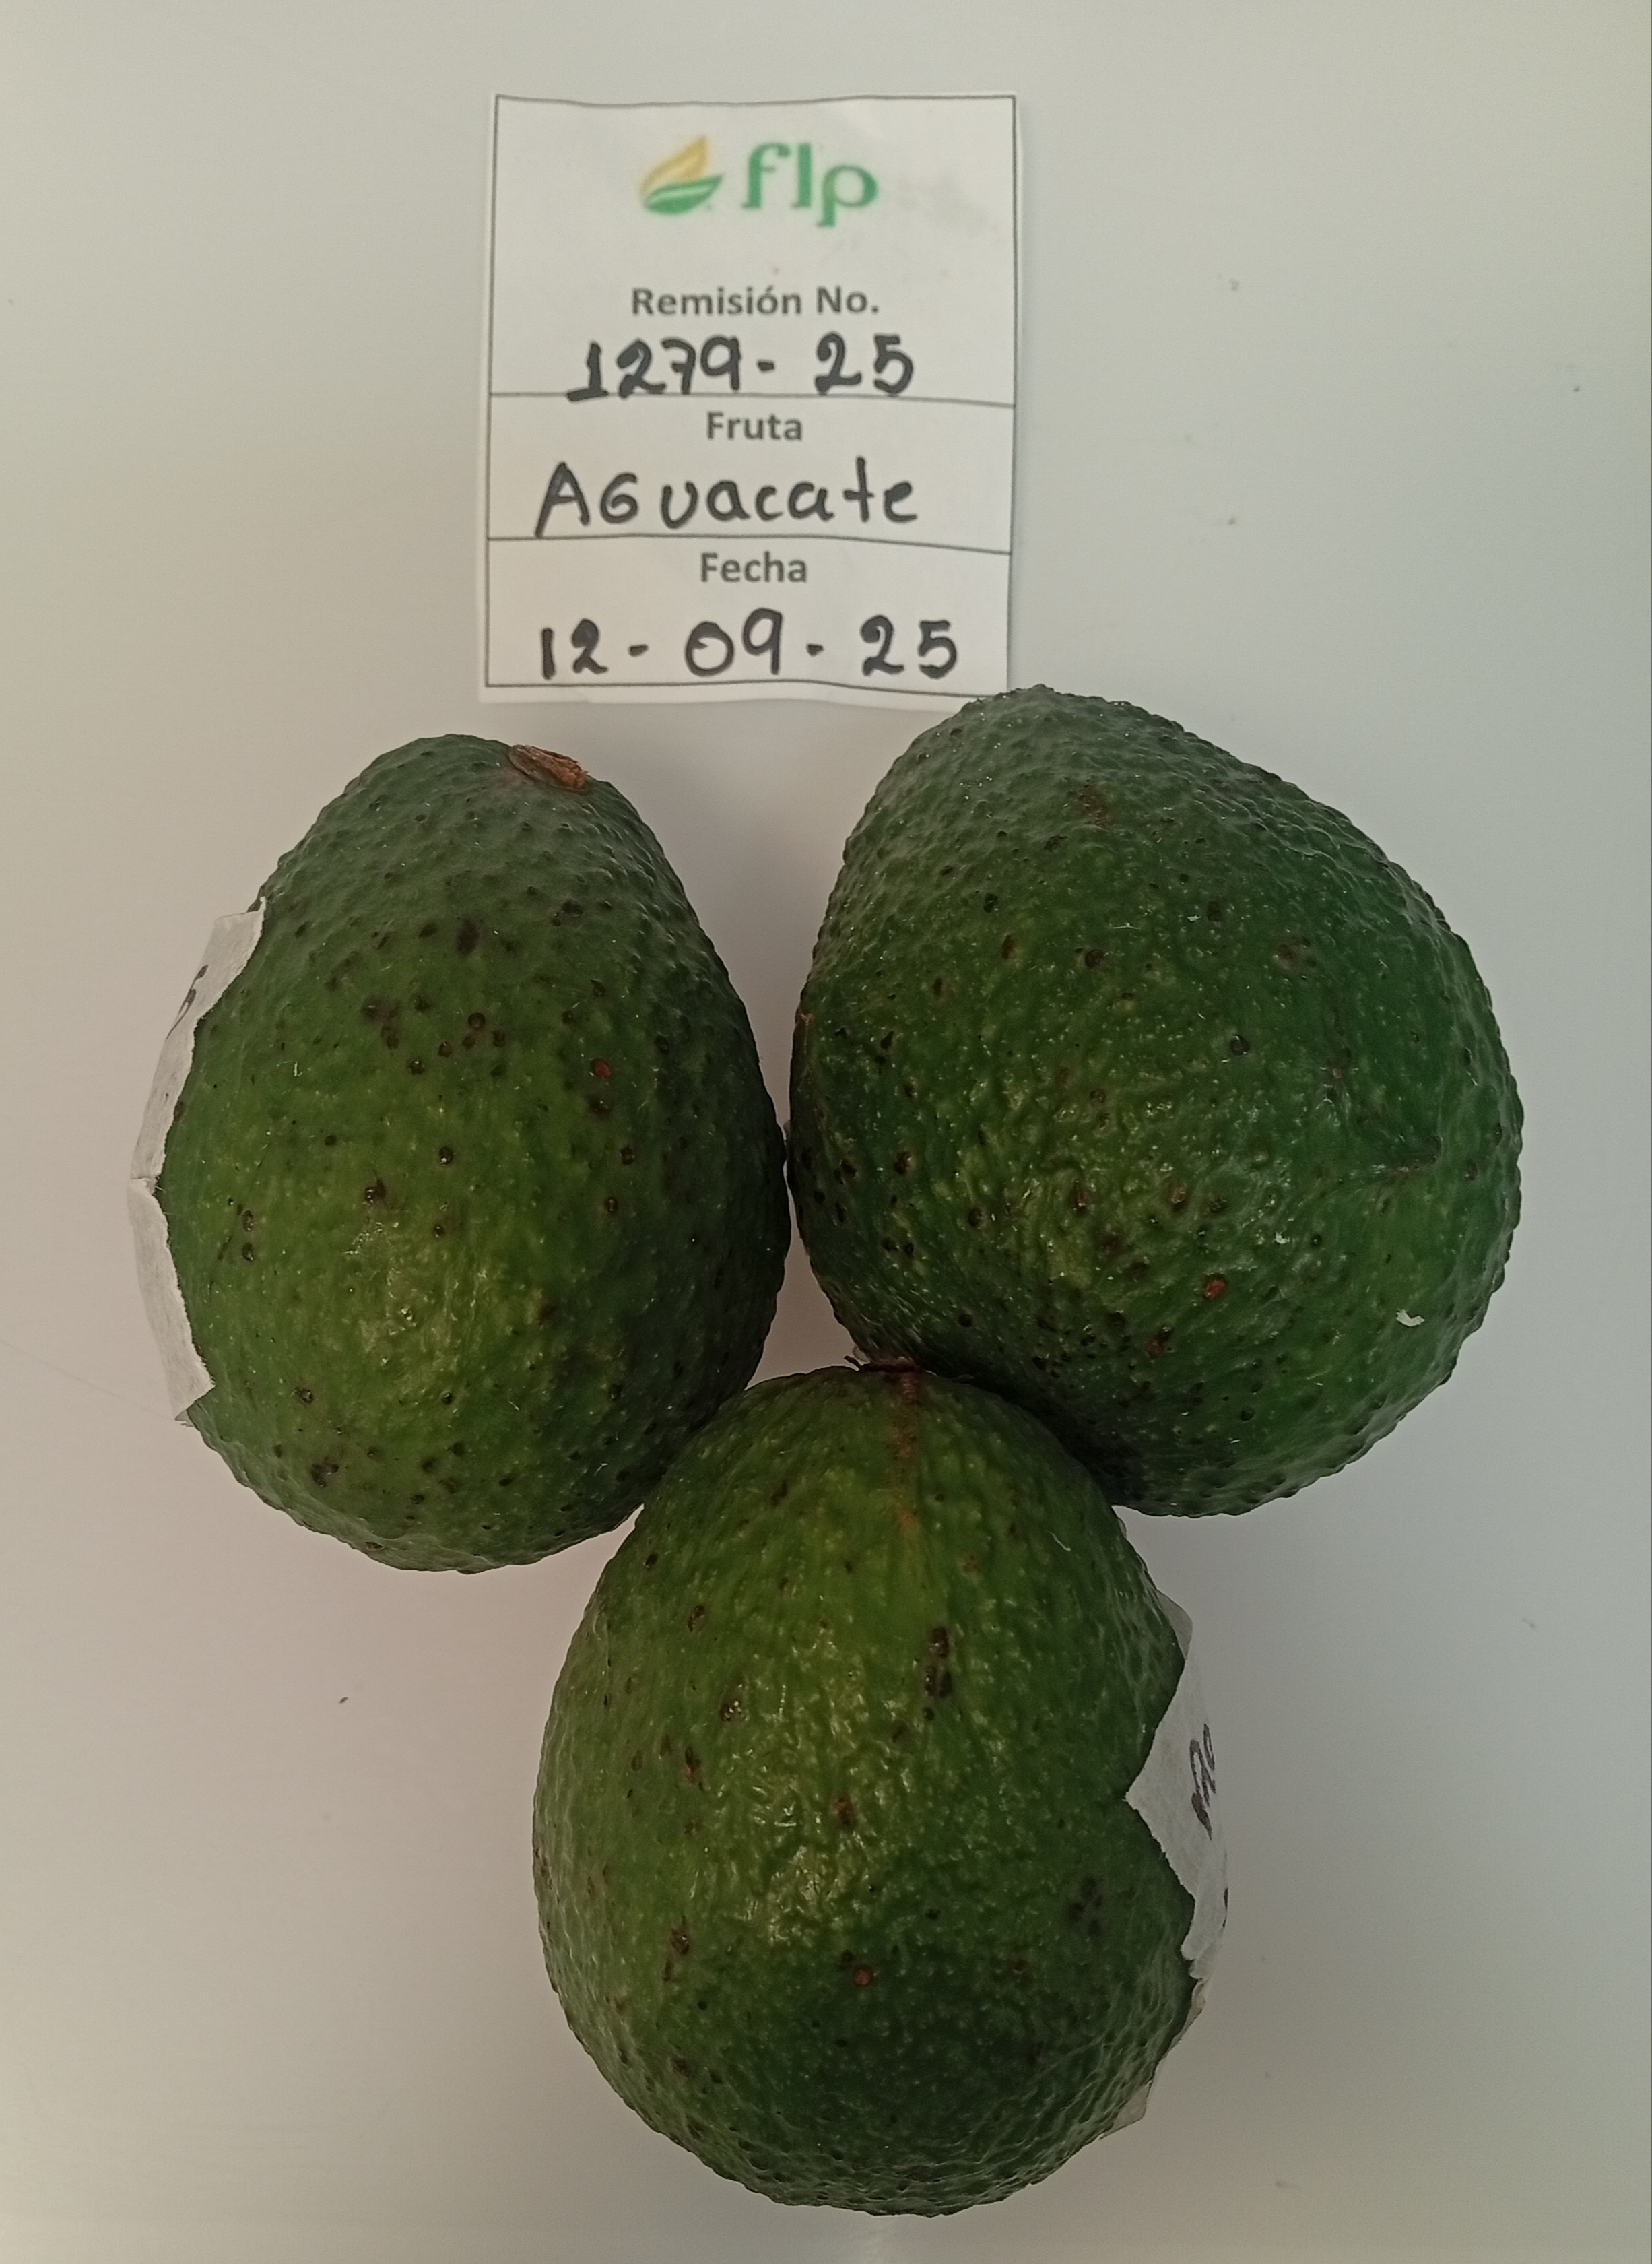 flp
Remisión No.
1279- 25
Fruta
AGuacate
Fecha
12- 09- 25